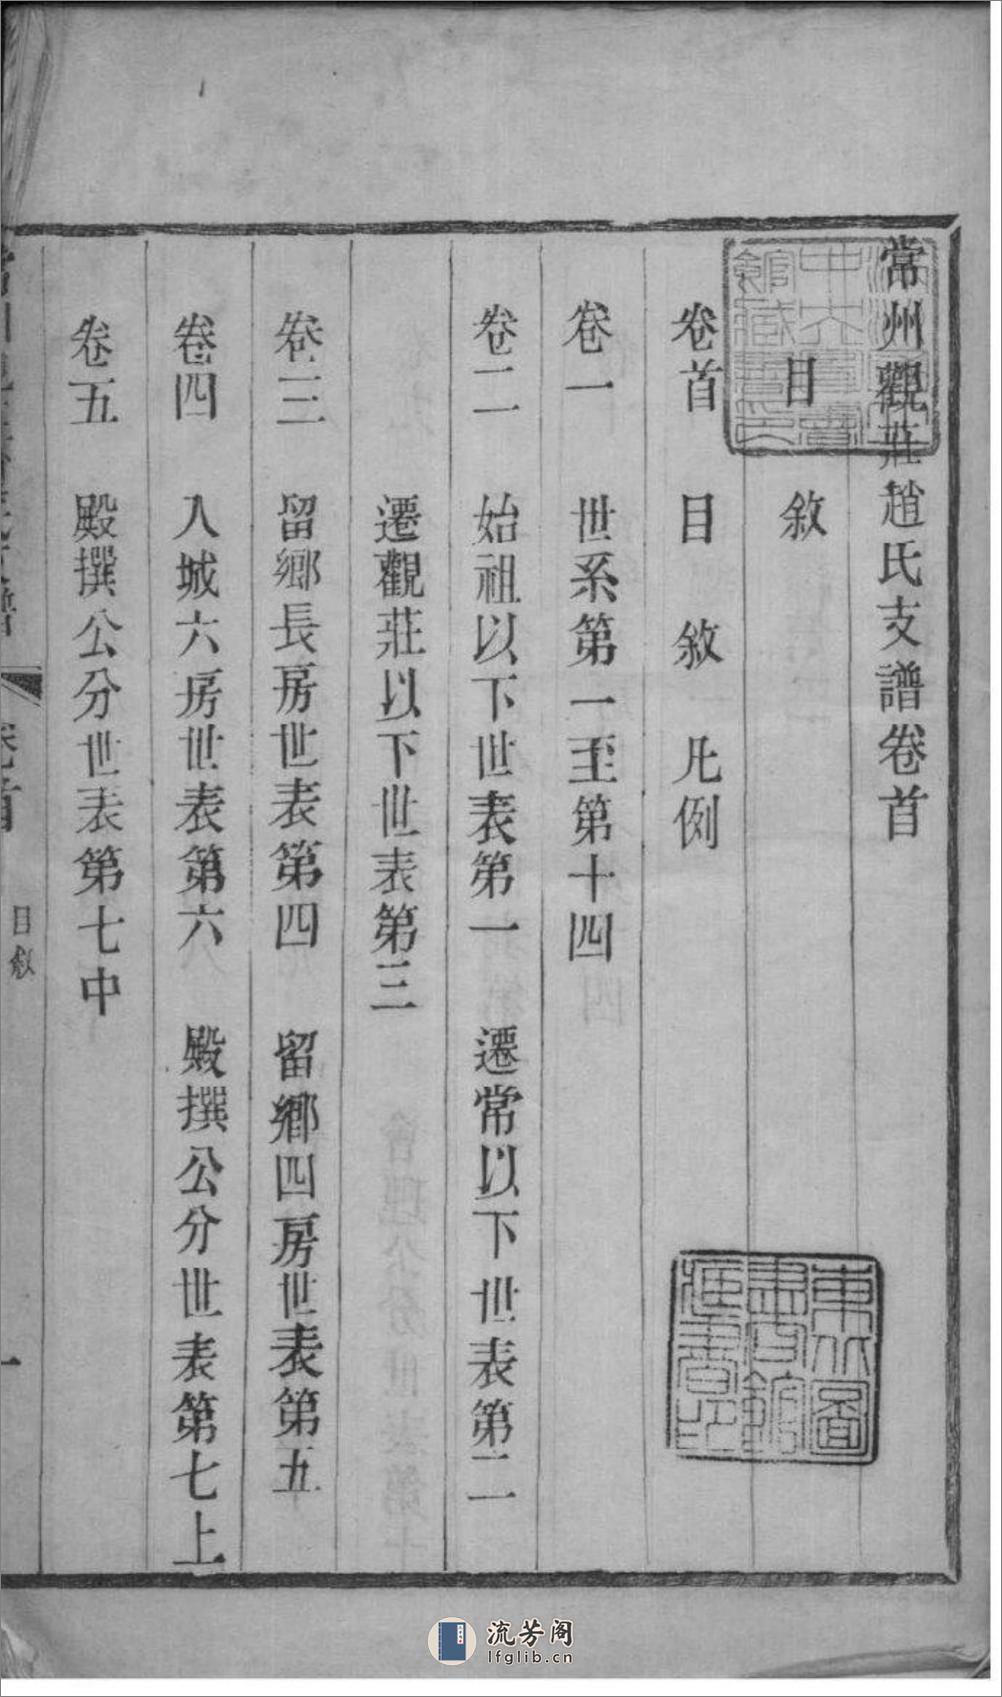 常州觀莊趙氏支譜卷首
目 敘
卷首 目 敘 凡例
卷一 世系第一至第十四
卷二 始祖以下世表第一 遷常以下世表第二
遷觀莊以下世表第三
卷三 留鄉長房世表第四 留鄉四房世表第五
卷四 入城六房世表第六 殿撰公分世表第七上
卷五 殿撰公分世表第七中
卷首 目敘 一
東北圖書館所藏善本
流芳阁
lfglib.cn